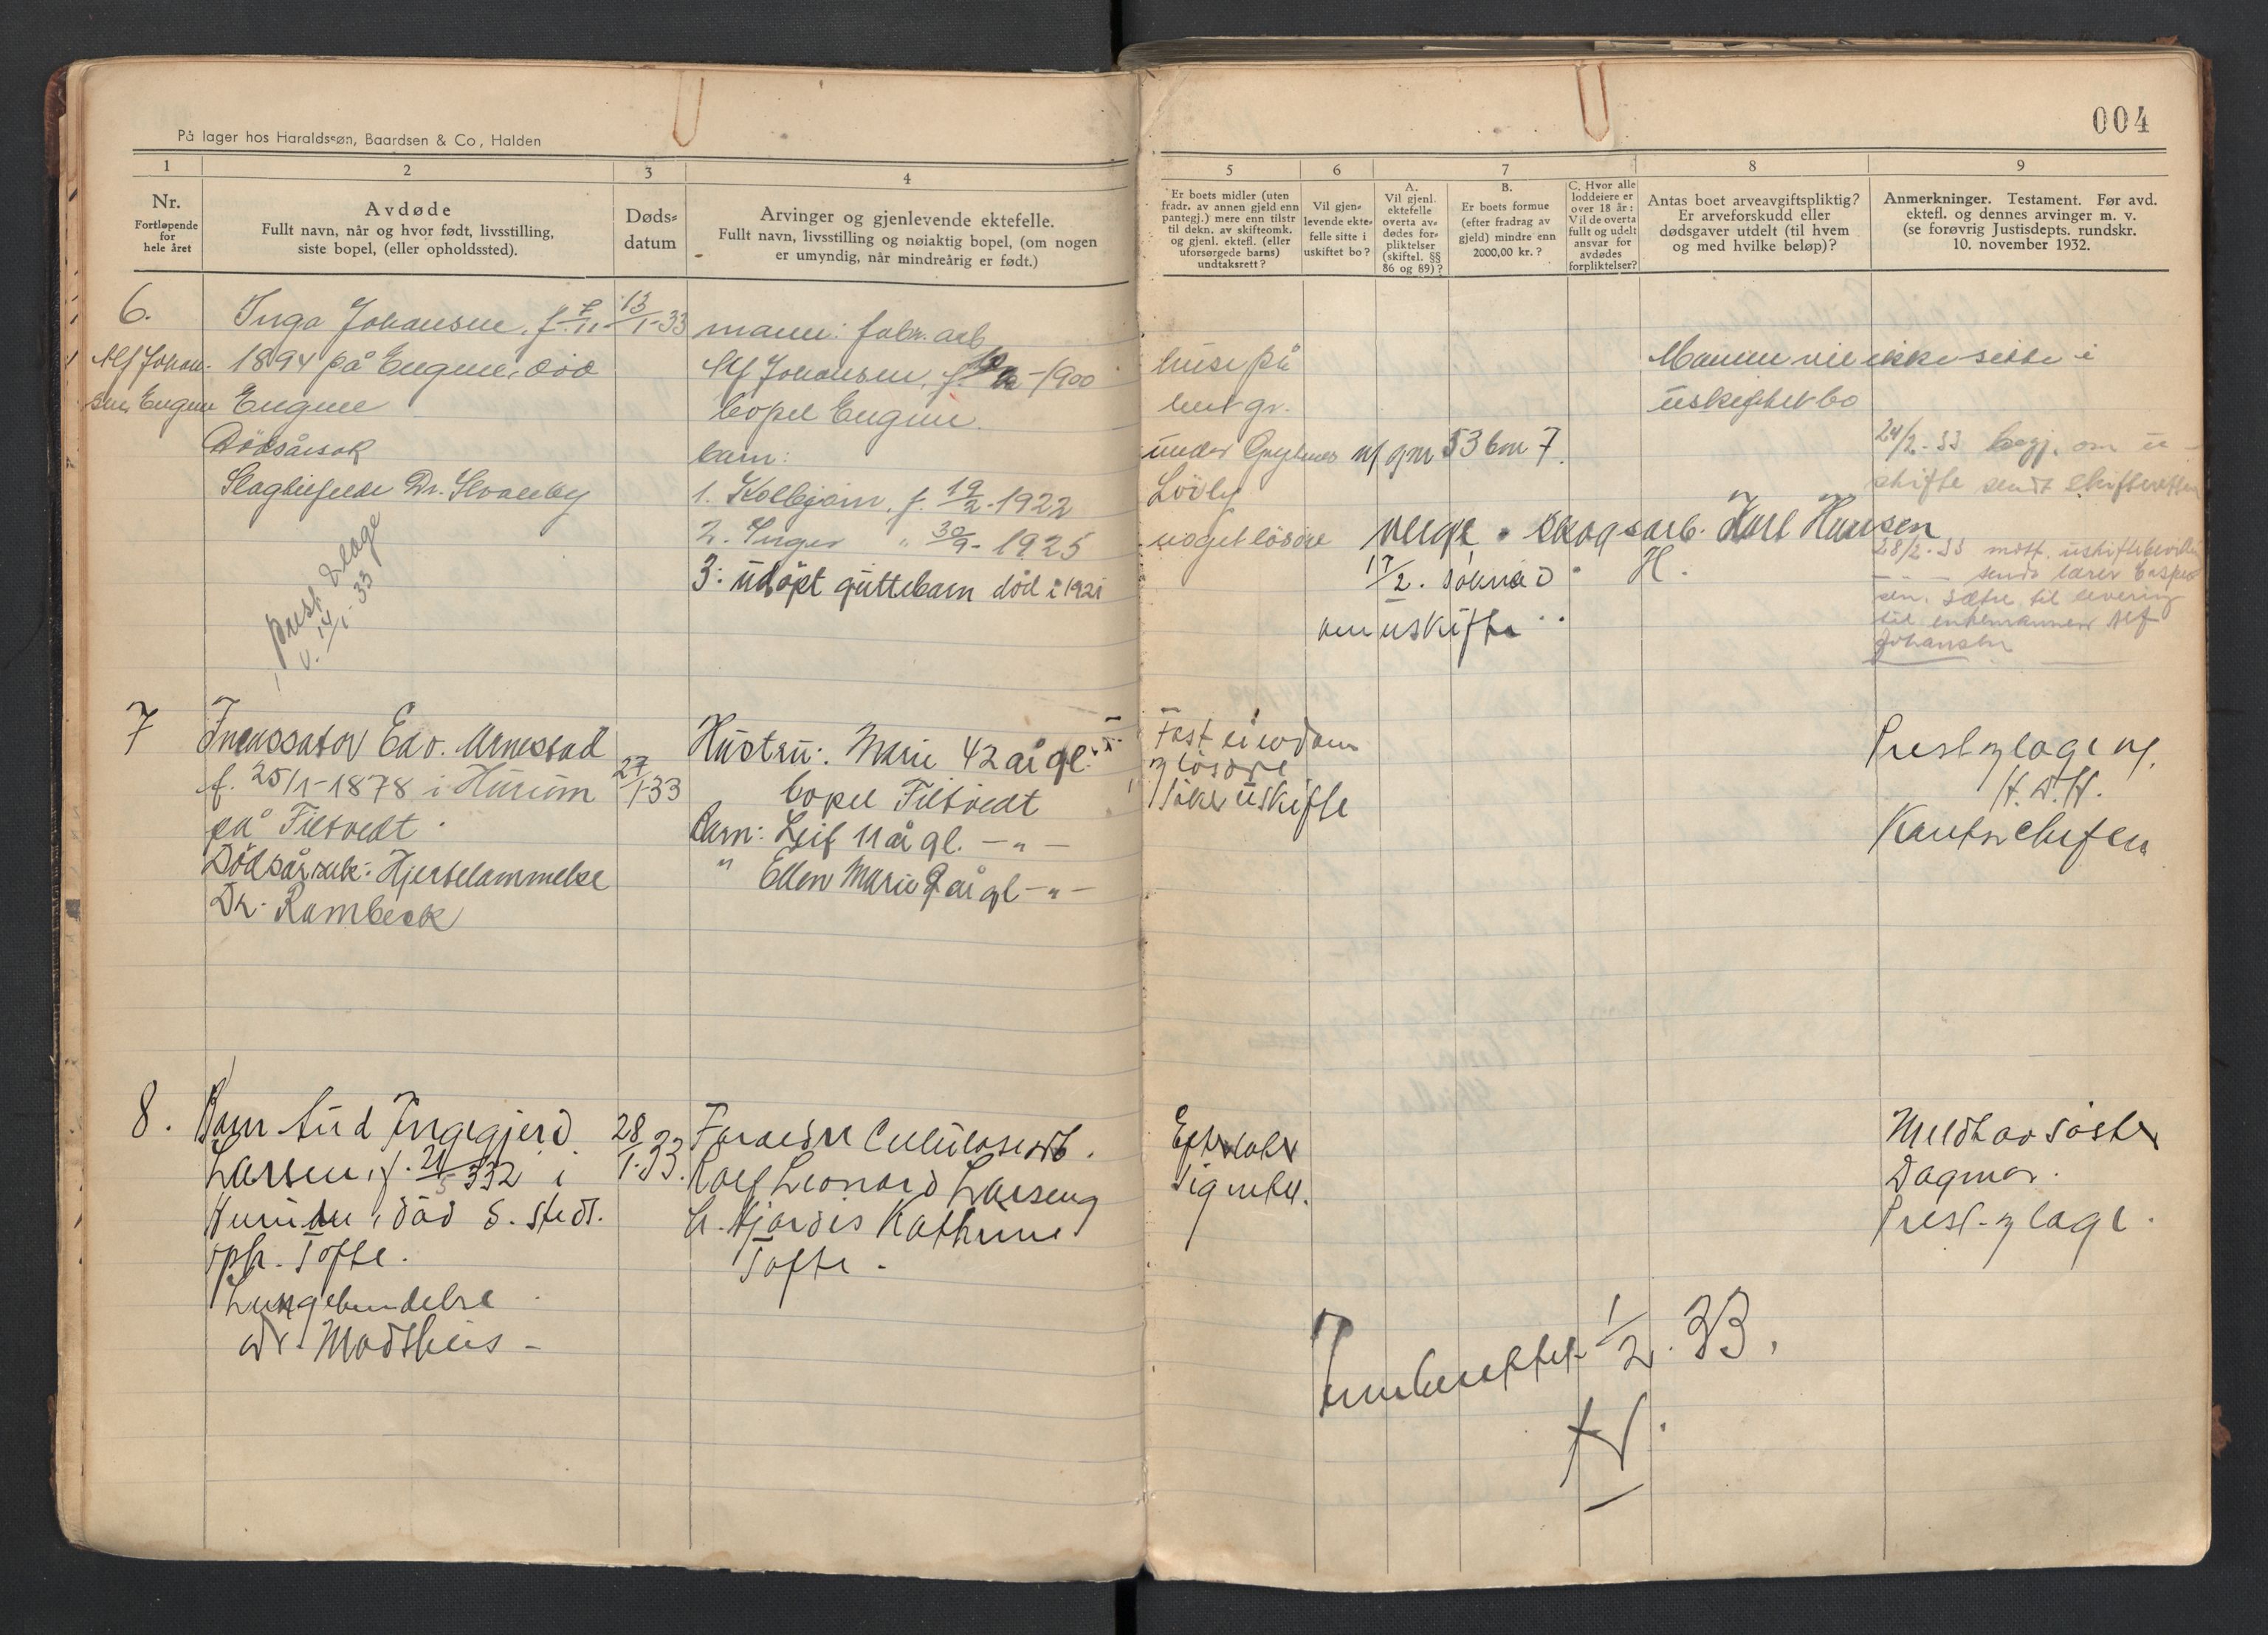 På lager hos Haraldssøn, Baardsen & Co, Halden
1
2
3
4
Nr.
Fortløpende
for
hele året
Avdøde
Fullt navn, når og hvor født, livsstilling,
siste bopel, (eller opholdssted).
Døds=
datum
Arvinger og gjenlevende ektefelle.
Fullt navn, livsstilling og nøiaktig bopel, (om nogen
er umyndig, når mindreårig er født.)
6.
Alf Johan-
sen, Engene
Inga Johansen, f. 7/11-
1894 på Engene, död
Engene
Dödsårsak
Slagtilfelle Dr. Svaleby
prest & lage
14/1-33
13/1-33
mann: fabr. arb
Alf Johansen, f. -1900
bopel Engene.
barn:
1. Kolbjørn, f. 19/2-1922
2. Inger " 30/9-1925
3: udöpt guttebarn död i 1921
7
Incassator Edv. Arnestad
f. 25/1-1878 i Hurum
på Filtvedt.
Dödsårsak: Hjertelammelse
Dr. Rambeck
27/1-33
Hustru: Marie 42 år gl.
bopel Filtvedt
Barn: Leif 11 år gl. - " -
" Ellen Marie 9 år gl - " -
8.
Barn Aud Ingegjerd
Larsen, f. 21/5 332 i
Hurum, död s. steds.
oph. Tofte.
Lungebendelse
dr. Madshus -
28/1-33.
Foreldre Cellulosearb.
Rolf Leonard Larsen og
h. Hjørdis Kathrine
Tofte.
004
5
6
7
8
9
Er boets midler (uten
fradr. av annen gjeld enn
pantegj.) mere enn tilstr
til dekn. av skifteomk.
og gjenl. ektef. (eller
uforsørgede barns)
undtaksrett?
Vil gjen=
levende ekte=
felle sitte i
uskiftet bo?
A.
Vil gjenl.
ektefelle
overta av=
dødes for=
pliktelser
(skiftel. §§
86 og 89)?
B.
Er boets formue
(efter fradrag av
gjeld) mindre enn
2000,00 kr.?
C. Hvor alle
loddeiere er
over 18 år:
Vil de overta
fullt og udelt
ansvar for
avdødes
forpliktelser?
Antas boet arveavgiftspliktig?
Er arveforskudd eller
dødsgaver utdelt (til hvem
og med hvilke beløp)?
Anmerkninger. Testament. Før avd.
ektefl. og dennes arvinger m. v.
(se forøvrig Justisdepts. rundskr.
10. november 1932.
huse på
leiet gr.
under gnr 53 bnr 7.
Lövly
noget lösöre
verge. Skogsarb. Karl Hansen
17/2. söknad H.
om uskifte
Mannen vil ikke sitte i
uskiftet bo
24/2-33 begj. om u-
skifte sendt skifteretten
28/2-33 mott. uskiftebevilln
sendt lærer Casper-
sen, Sætre, til levering
til enkemannen Alf
Johansen
Fast eiendom
og lösöre
söker uskifte
Prest og lage
H. A. H.
Kontorchefen
Efterlater
sig intet.
Meldt av söster
Dagmar.
Prest og lage.
Innberettet 1/2. 33.
H.